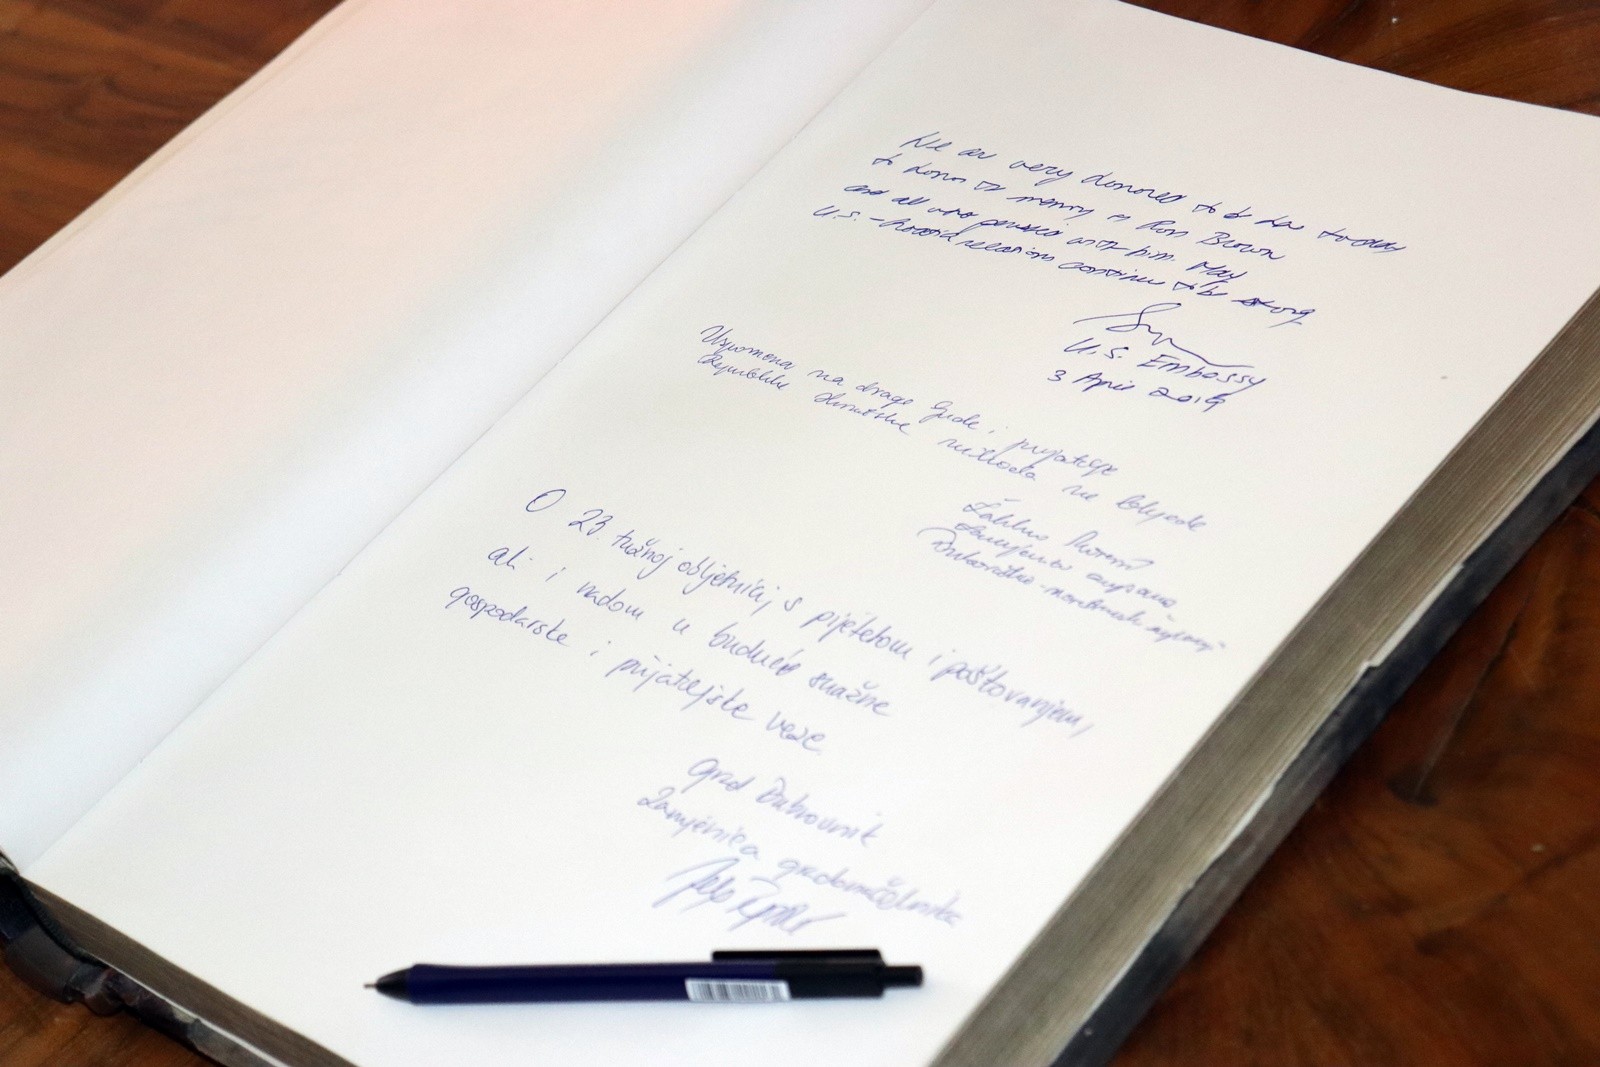 We are very honored to be here today
to honor the memory of Ron Brown
and all who perished with him. May
U.S.-Croatia relations continue to be strong
U.S. Embassy
3 April 2019
Uspomena na drage ljude, i prijatelje
Republike Hrvatske nikada ne blijede
Zamjenica župana
Dubrovačko-neretvanske županije
O 23. tužnoj obljetnici, s pijetetom i poštovanjem,
ali i nadom u buduće snažne
gospodarske i prijateljske veze.
Grad Dubrovnik
Zamjenica gradonačelnika